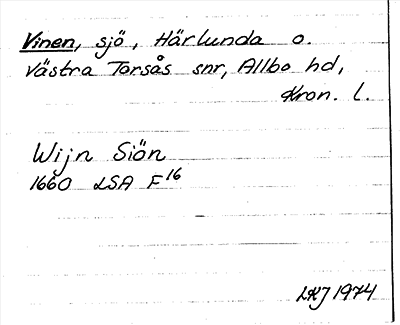 Vinen, sjö, Härlunda o.
Västra Torsås snr, Allbo hd,
Kron. l.
Wijn Siön
1660 LSA F16
LKJ 1974